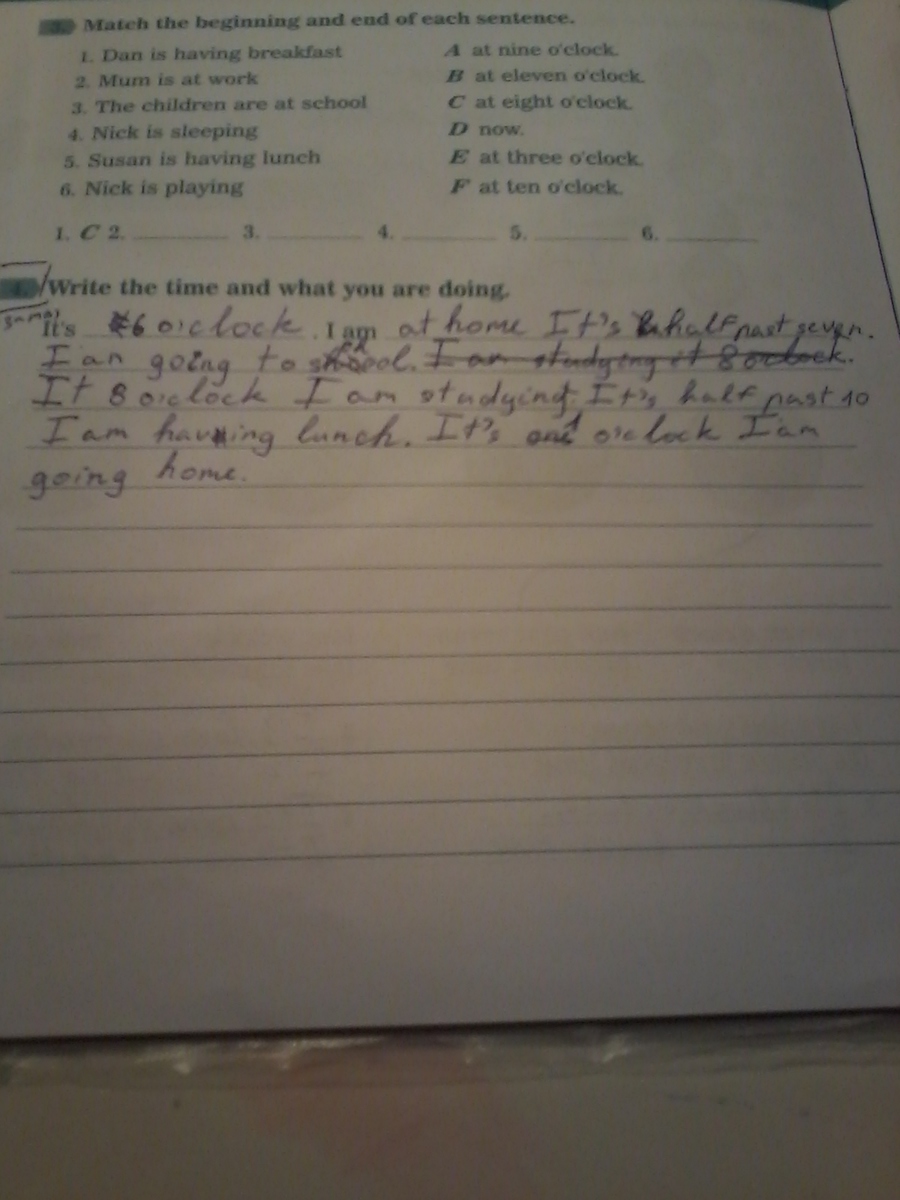 3. Match the beginning and end of each sentence.
1. Dan is having breakfast A at nine o'clock.
2. Mum is at work B at eleven o'clock.
3. The children are at school C at eight o'clock.
4. Nick is sleeping D now.
5. Susan is having lunch E at three o'clock.
6. Nick is playing F at ten o'clock.
1. C 2. 3. 4. 5. 6.
Write the time and what you are doing.
It's 6 o'clock. I am at home It's half past seven.
I an going to school. I am studying it 8 o'clock.
It 8 o'clock I am studying. It's half past 10
I am having lunch. It's one o'clock I'am
going home.